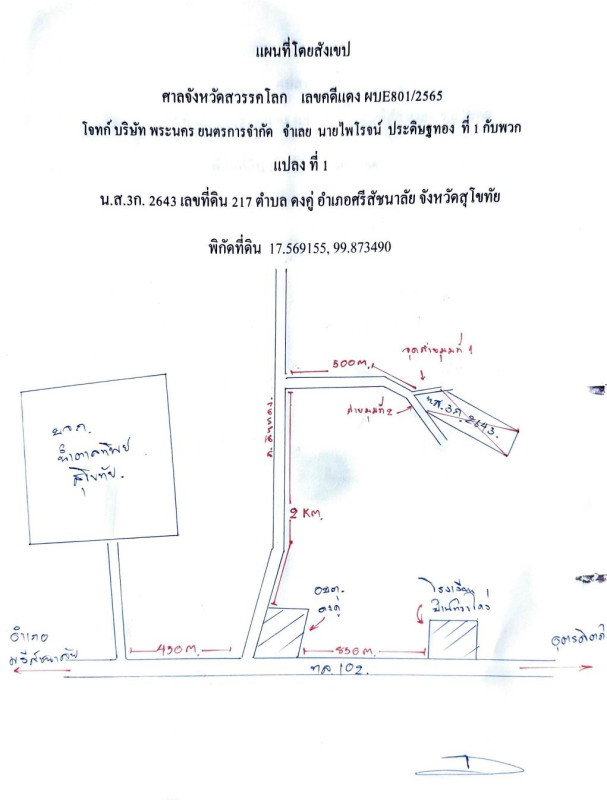 แผนที่โดยสังเขป
ศาลจังหวัดสวรรคโลก เลขคดีแดง ผบE801/2565
โจทก์ บริษัท พระนคร ยนตรการจำกัด จำเลย นายไพโรจน์ ประดิษฐทอง ที่ 1 กับพวก
แปลง ที่ 1
น.ส.3ก. 2643 เลขที่ดิน 217 ตำบล ดงคู่ อำเภอศรีสัชนาลัย จังหวัดสุโขทัย
พิกัดที่ดิน 17.569155, 99.873490
500m.
จุดถ่ายมุมที่ 1
ถ่ายมุมที่ 2
น.ส.3ก. 2643.
บจก.
น้ำตาลทิพย์
สุโขทัย.
2 Km.
อบต.
ดงคู่
โรงเรียน
อำเภอ
ศรีสัชนาลัย
450m.
850m.
อุตรดิตถ์
ทล.102.